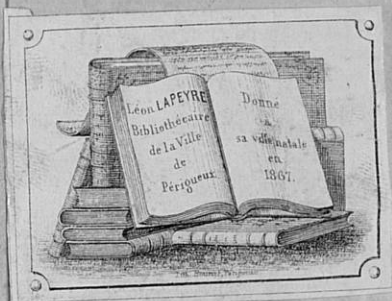 Léon LAPEYRE
Bibliothécaire
de la Ville
de
Périgueux
Donné
à
sa ville natale
en
1867.